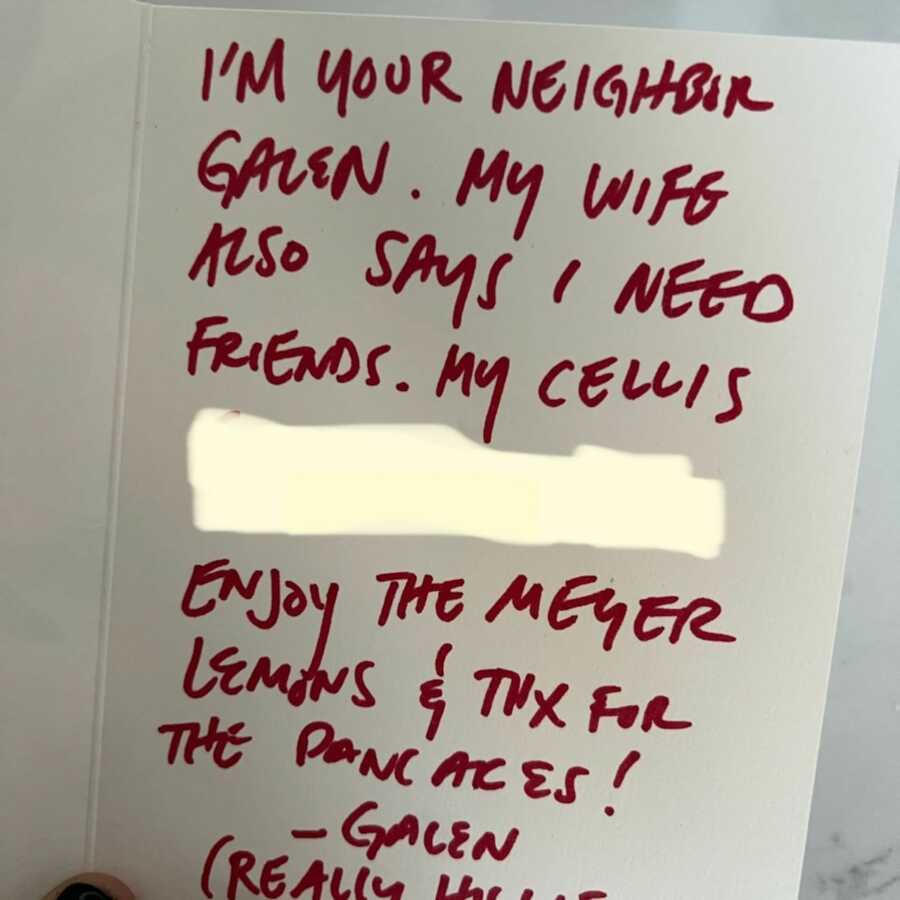 I'M YOUR NEIGHBOR
GALEN. MY WIFE
ALSO SAYS I NEED
FRIENDS. MY CELL IS
ENJOY THE MEYER
LEMONS & THX FOR
THE PANCAKES!
- GALEN
(REALLY